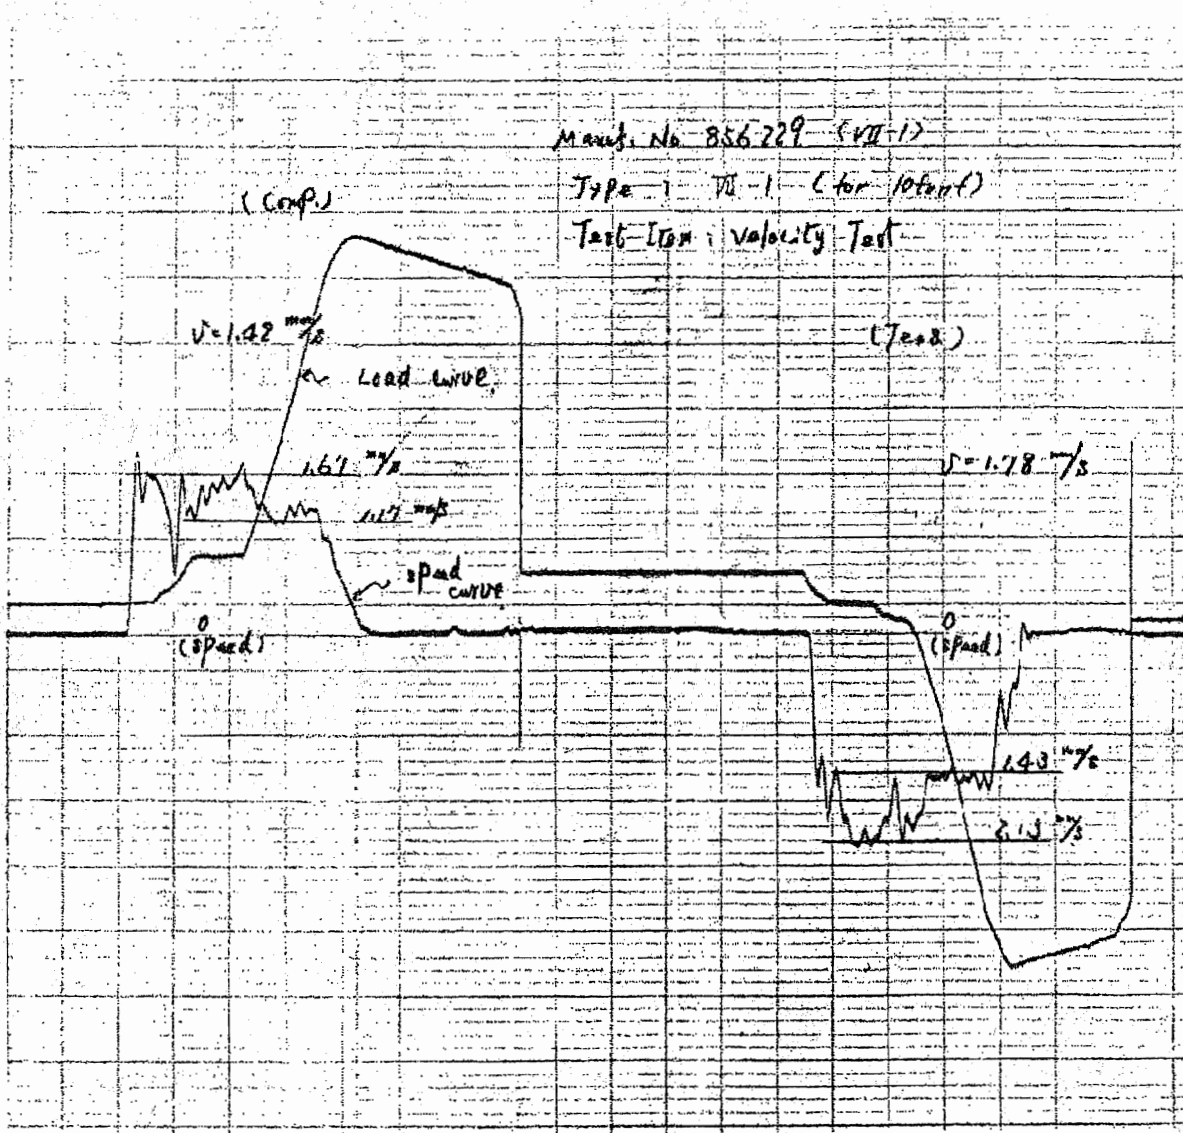 Manuf. No 856229 (VII-1)
Type : VII-1 (for 10ton)
Test Item : Velocity Test
(Comp.)
v=1.42 mm/s
Load curve.
(Tens.)
1.67 mm/s
v=1.78 mm/s
1.17 mm/s
speed
curve
0
(speed)
0
(speed)
1.43 mm/s
2.13 mm/s